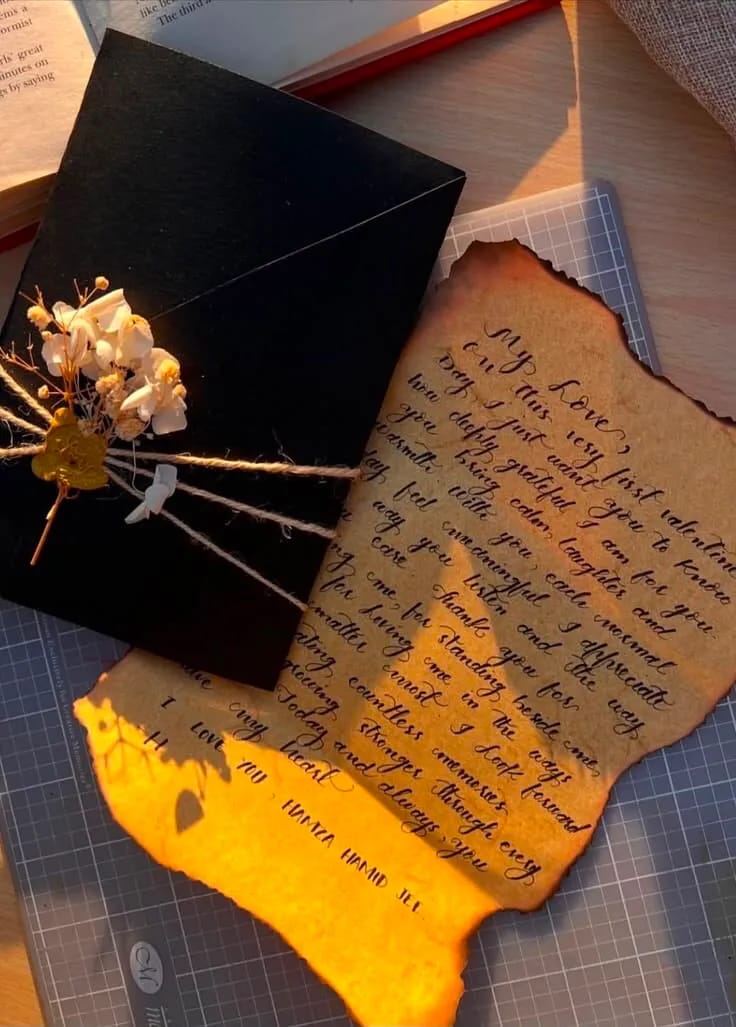 My Love,
On this very first valentine
Day I just want you to know
how deeply grateful I am for you.
you bring calm, laughter and
warmth with you, each normal
day feel meaningful I appreciate
way you listen and the way
care thank you for
me, for standing beside me,
for loving me in the ways
matter most I look forward
countless memories
growing stronger through every
Today and always you
my heart
I LOVE YOU HAMZA HAMID JEE
ormist
rls' great
inutes on
gs by saying
The third